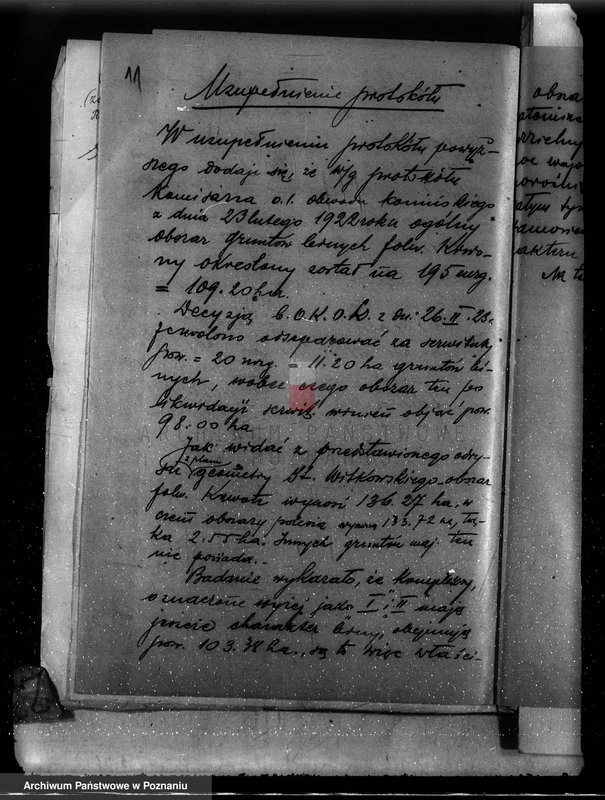 11
Uzupełnienie protokółu
W uzupełnieniu protokółu powyż-
szego dodaję się, że w/g protokółu
Komisarza o.l. obwodu konińskiego
z dnia 23 lutego 1922 roku ogólny
obszar gruntów leśnych folw.
ny określony został na 195 mrg.
= 109.20 ha.
Decyzją b. O.K.O.Ł. z dn. 26.II.23.
zezwolono odseparować za serwituty
pow. = 20 mrg. = 11.20 ha gruntów leś-
nych, wobec czego obszar ten po
likwidacji serwit. winien objąć pow.
98.00 ha
Jak widać z przedstawionego odry-
su z planu geometry St. Witkowskiego obszar
folw. wynosi 136.27 ha, w
czem obszary leśne wynoszą 133.72 ha, łą-
ka 2.55 ha. Innych gruntów maj. ten
nie posiada. -
Badanie wykazało, że kompleksy,
oznaczone wyżej jako I i II mają
jeszcze charakter leśny, obejmują
pow. 103.38 ha., są to więc właści-
obsza
wo
Na t
Archiwum Państwowe w Poznaniu